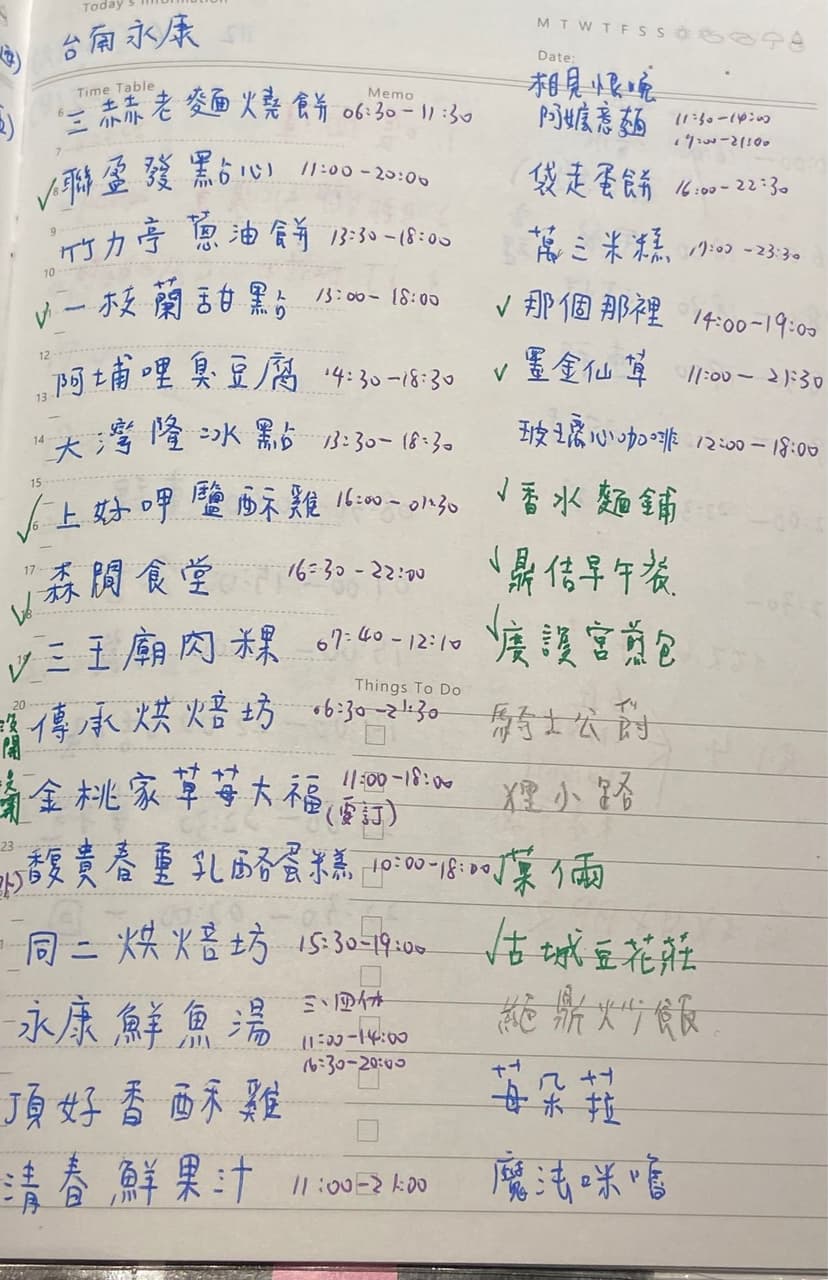 Today's Information
台南永康
M T W T F S S
Date:
Time Table
Memo
三赫老麵燒餅 06:30-11:30
✓聯盈發點心 11:00-20:00
竹力亭蔥油餅 13:30-18:00
✓一枝蘭甜點 13:00-18:00
阿埔哩臭豆腐 14:30-18:30
大灣隆冰點 13:30-18:30
✓上好呷鹽酥雞 16:00-01:30
✓森閒食堂 16:30-22:00
✓三王廟肉粿 07:40-12:10
傳承烘焙坊 06:30-21:30
沒開
金桃家草莓大福 11:00-18:00
(要訂)
沒開
馥貴春重乳酪蛋糕 10:00-18:00
同二烘焙坊 15:30-19:00
永康鮮魚湯 三、四休
11:00-14:00
16:30-20:00
頂好香酥雞
清春鮮果汁 11:00-21:00
相見恨晚
阿嬤意麵 11:30-14:00
17:00-21:00
袋走蛋餅 16:00-22:30
萬三米糕 17:00-23:30
✓那個那裡 14:00-19:00
✓墨金仙草 11:00-21:30
玻璃心咖啡 12:00-18:00
✓香水麵鋪
✓鼎佶早午餐
✓廣護宮煎包
Things To Do
騎士公爵
狸小路
✓葉倆
✓古城豆花莊
絕鼎炒飯
莓朵菈
魔法咪嚕